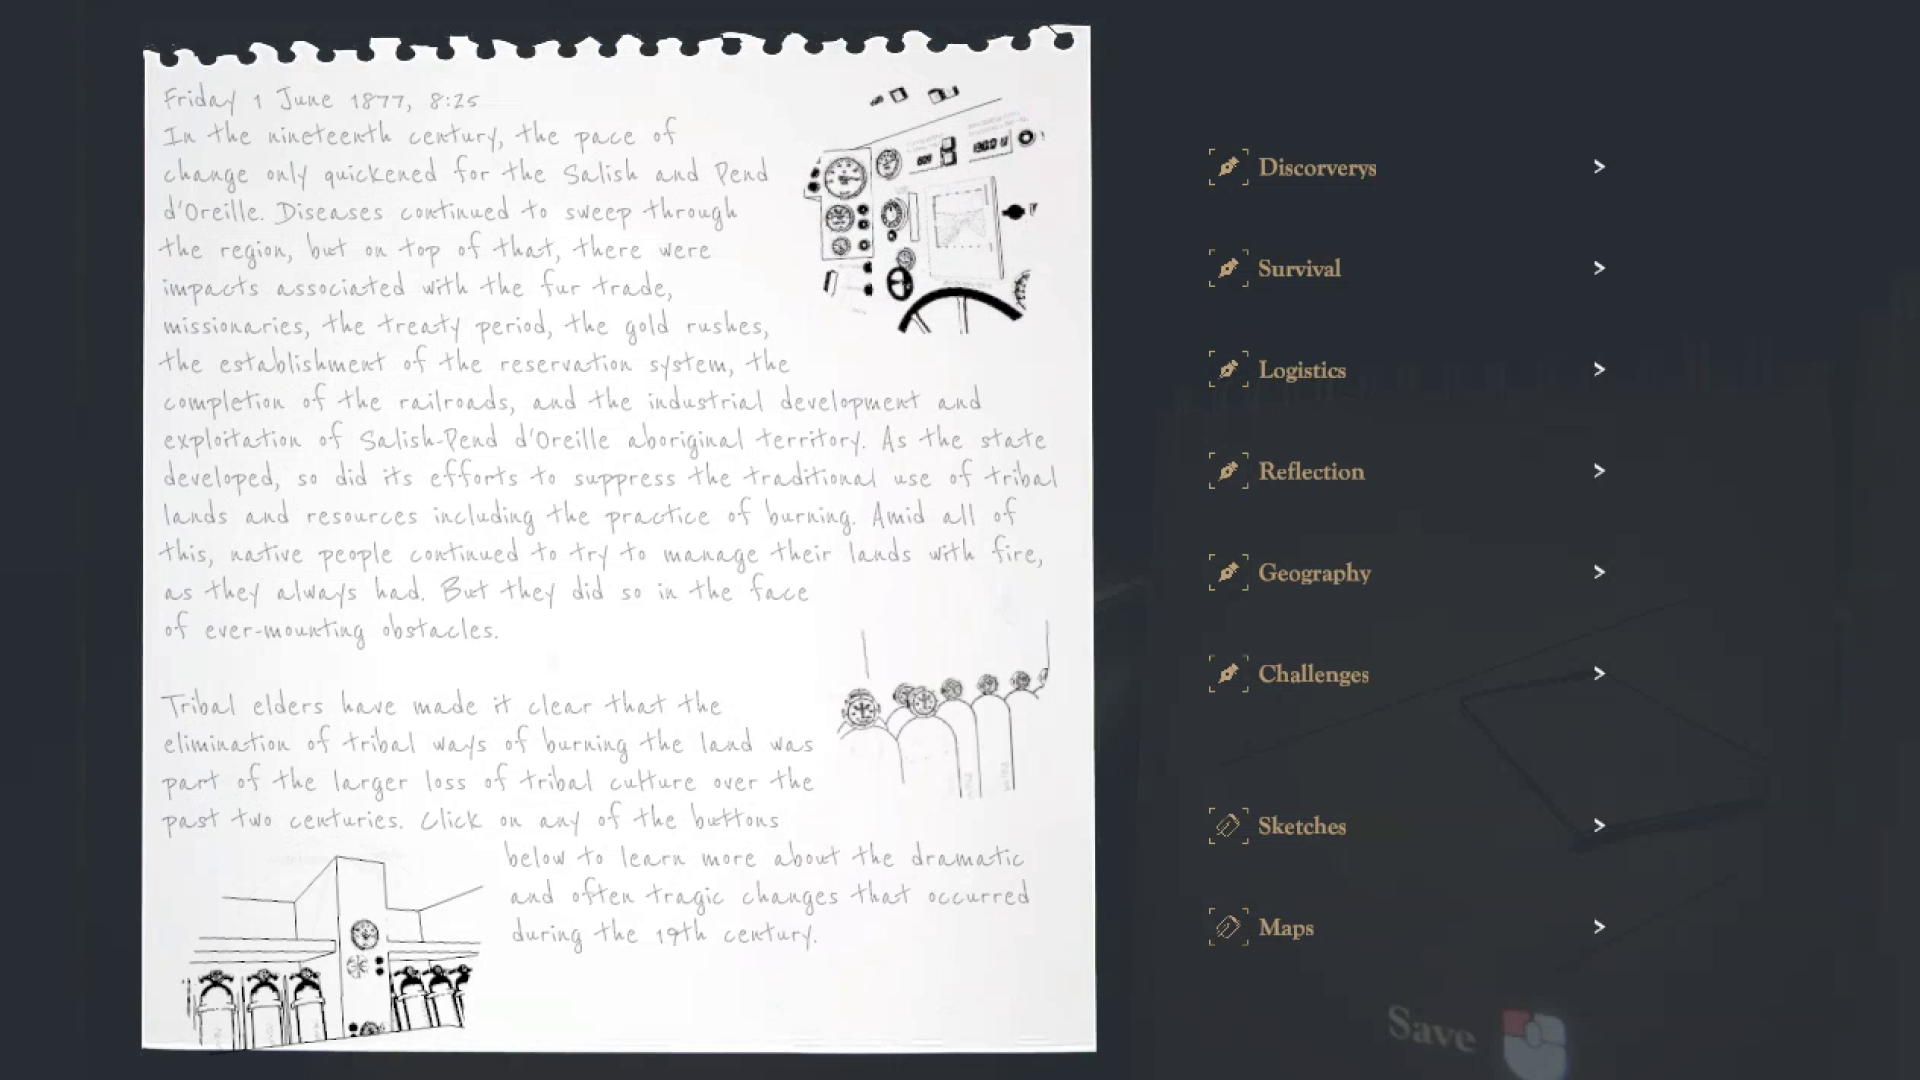 Friday 1 June 1877, 8:25
In the nineteenth century, the pace of
change only quickened for the Salish and Pend
d'Oreille. Diseases continued to sweep through
the region, but on top of that, there were
impacts associated with the fur trade,
missionaries, the treaty period, the gold rushes,
the establishment of the reservation system, the
completion of the railroads, and the industrial development and
exploitation of Salish-Pend d'Oreille aboriginal territory. As the state
developed, so did its efforts to suppress the traditional use of tribal
lands and resources including the practice of burning. Amid all of
this, native people continued to try to manage their lands with fire,
as they always had. But they did so in the face
of ever-mounting obstacles.
Tribal elders have made it clear that the
elimination of tribal ways of burning the land was
part of the larger loss of tribal culture over the
past two centuries. Click on any of the buttons
below to learn more about the dramatic
and often tragic changes that occurred
during the 19th century.
Discorverys >
Survival >
Logistics >
Reflection >
Geography >
Challenges >
Sketches >
Maps >
Save